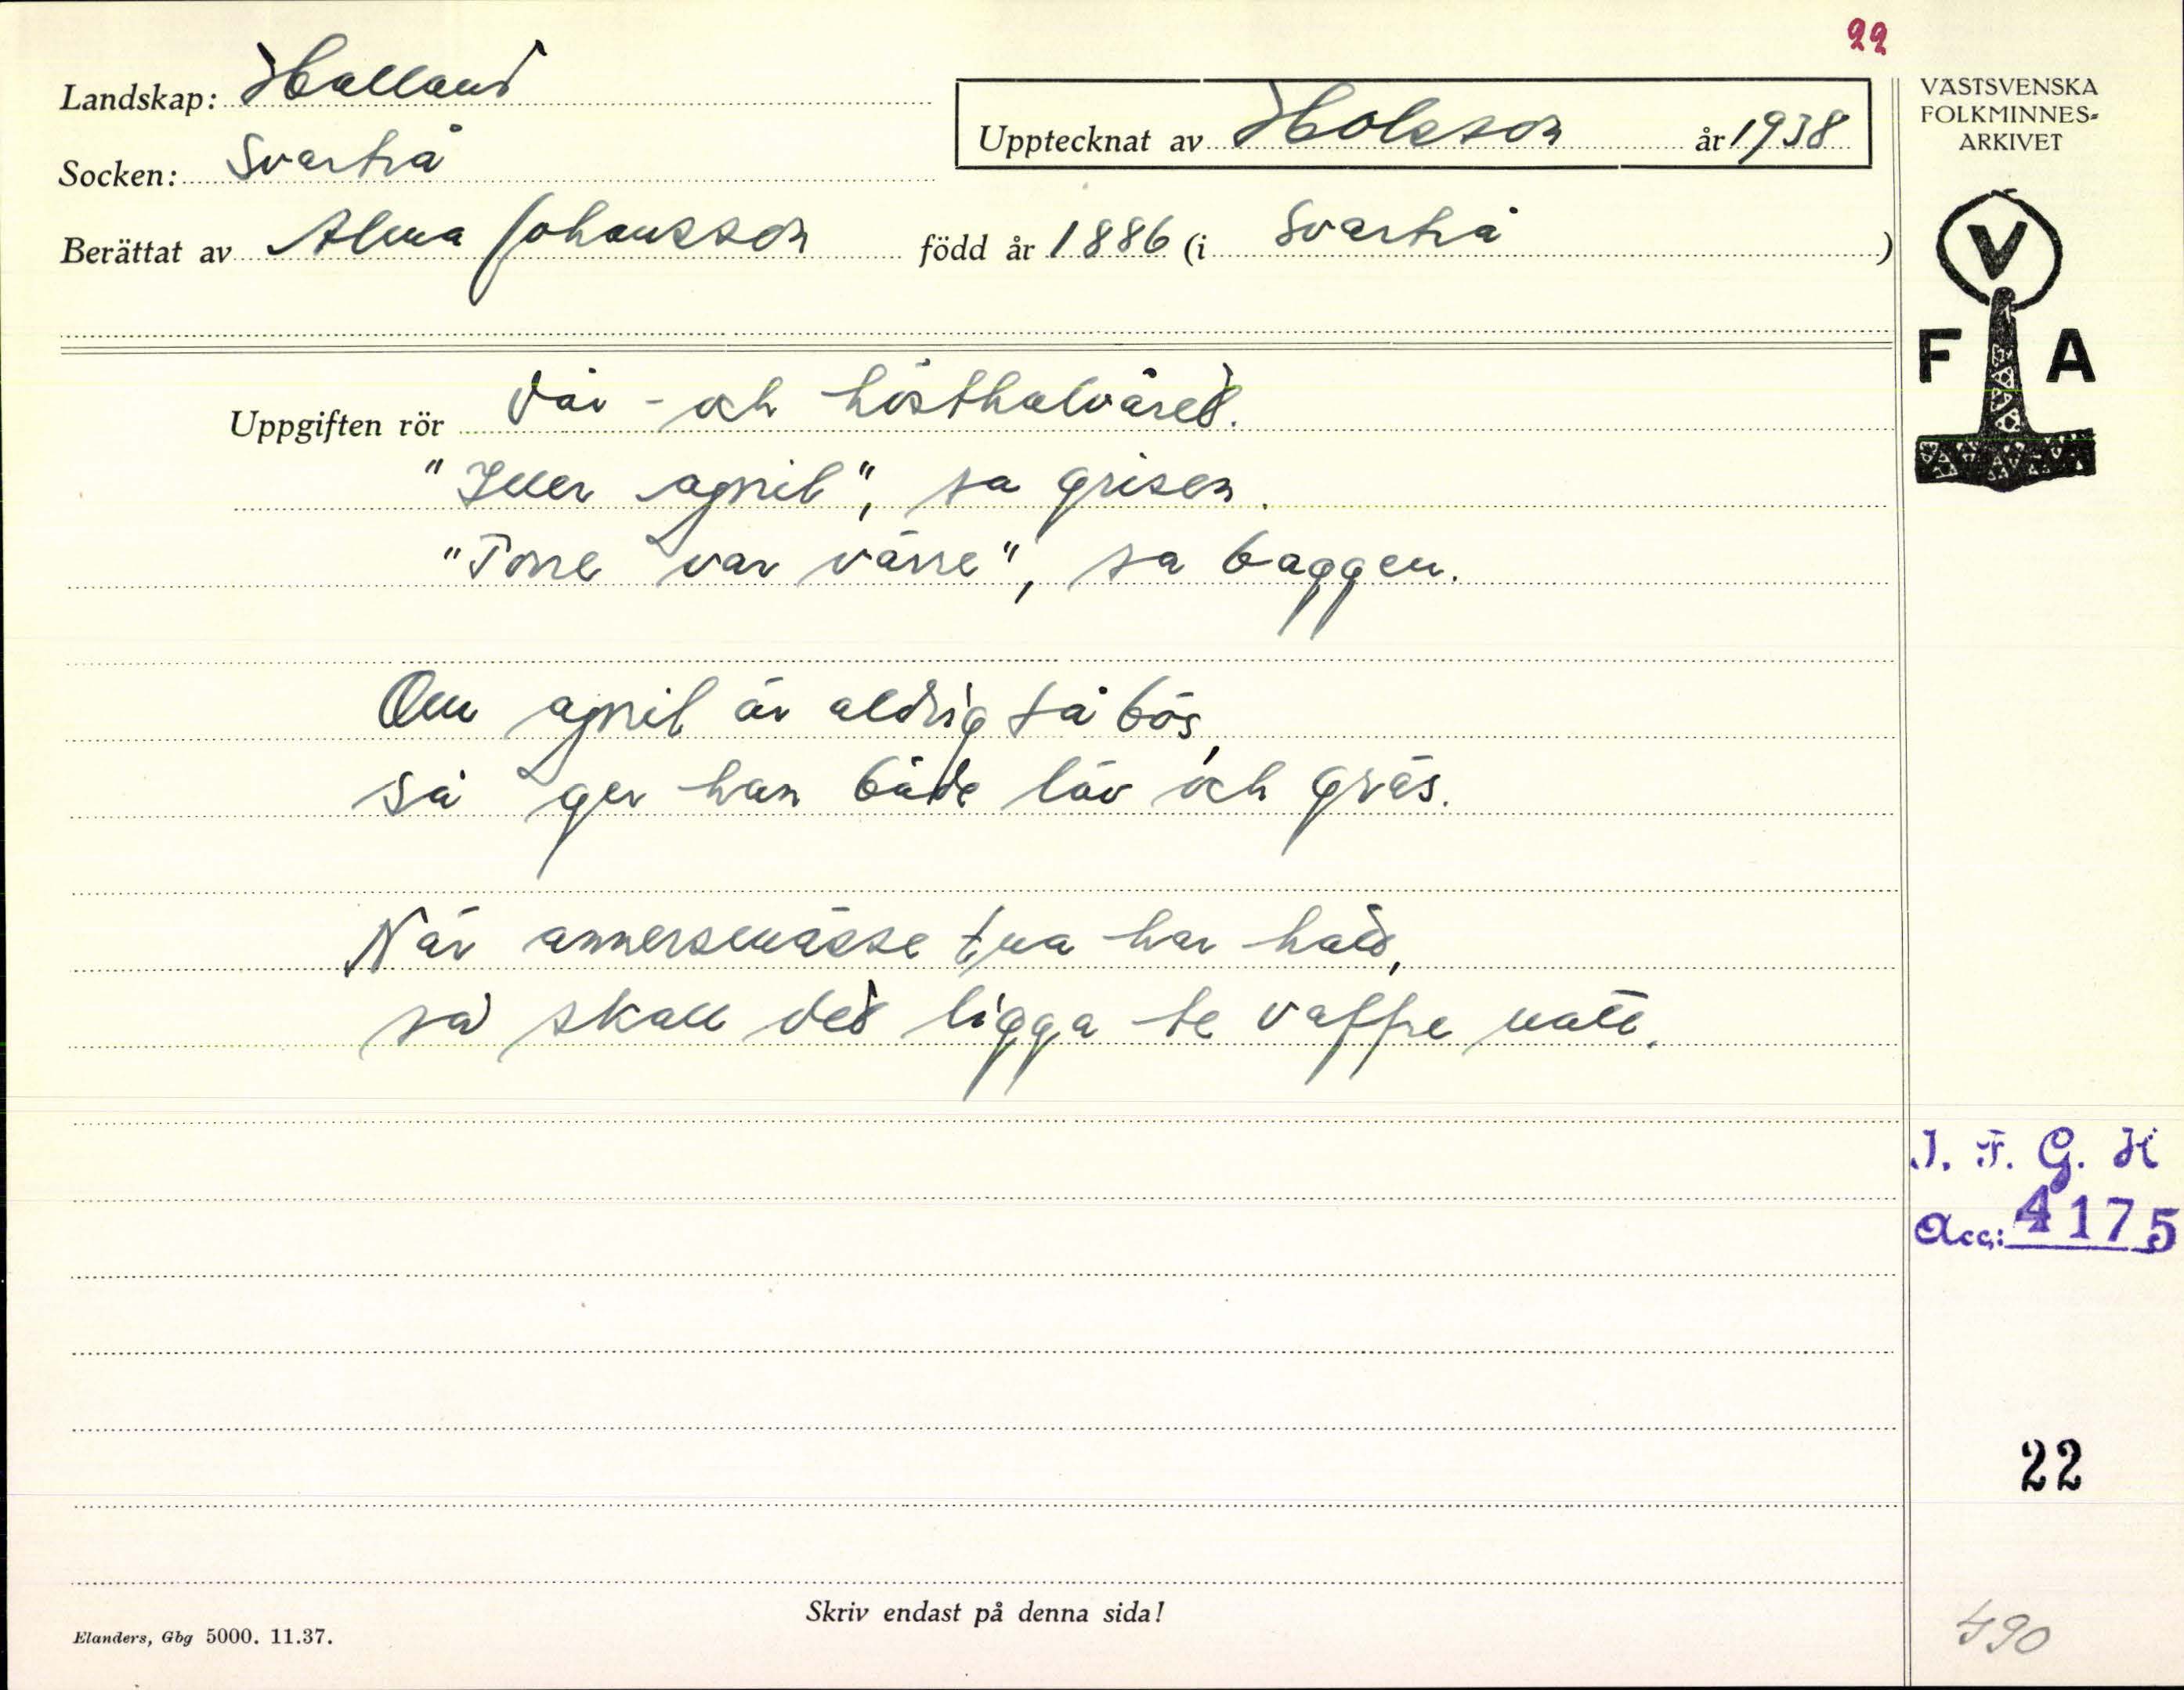 22
Landskap: Halland
Socken: Svartrå
Berättat av Alma Johansson född år 1886 (i Svartrå)
Upptecknat av Holsson år 1938
VÄSTSVENSKA
FOLKMINNES-
ARKIVET
V
F A
Uppgiften rör Vår- och hösthalvåret.
"Iller april", sa grisen.
"Torre var värre", sa baggen.
Om april är aldrig så bös,
så ger han både löv och gräs.
När annersmässe tua har hatt,
så skall det ligga te vaffre natt.
I. F. G. H
Acc: 4175
22
490
Skriv endast på denna sida!
Elanders, Gbg 5000. 11.37.